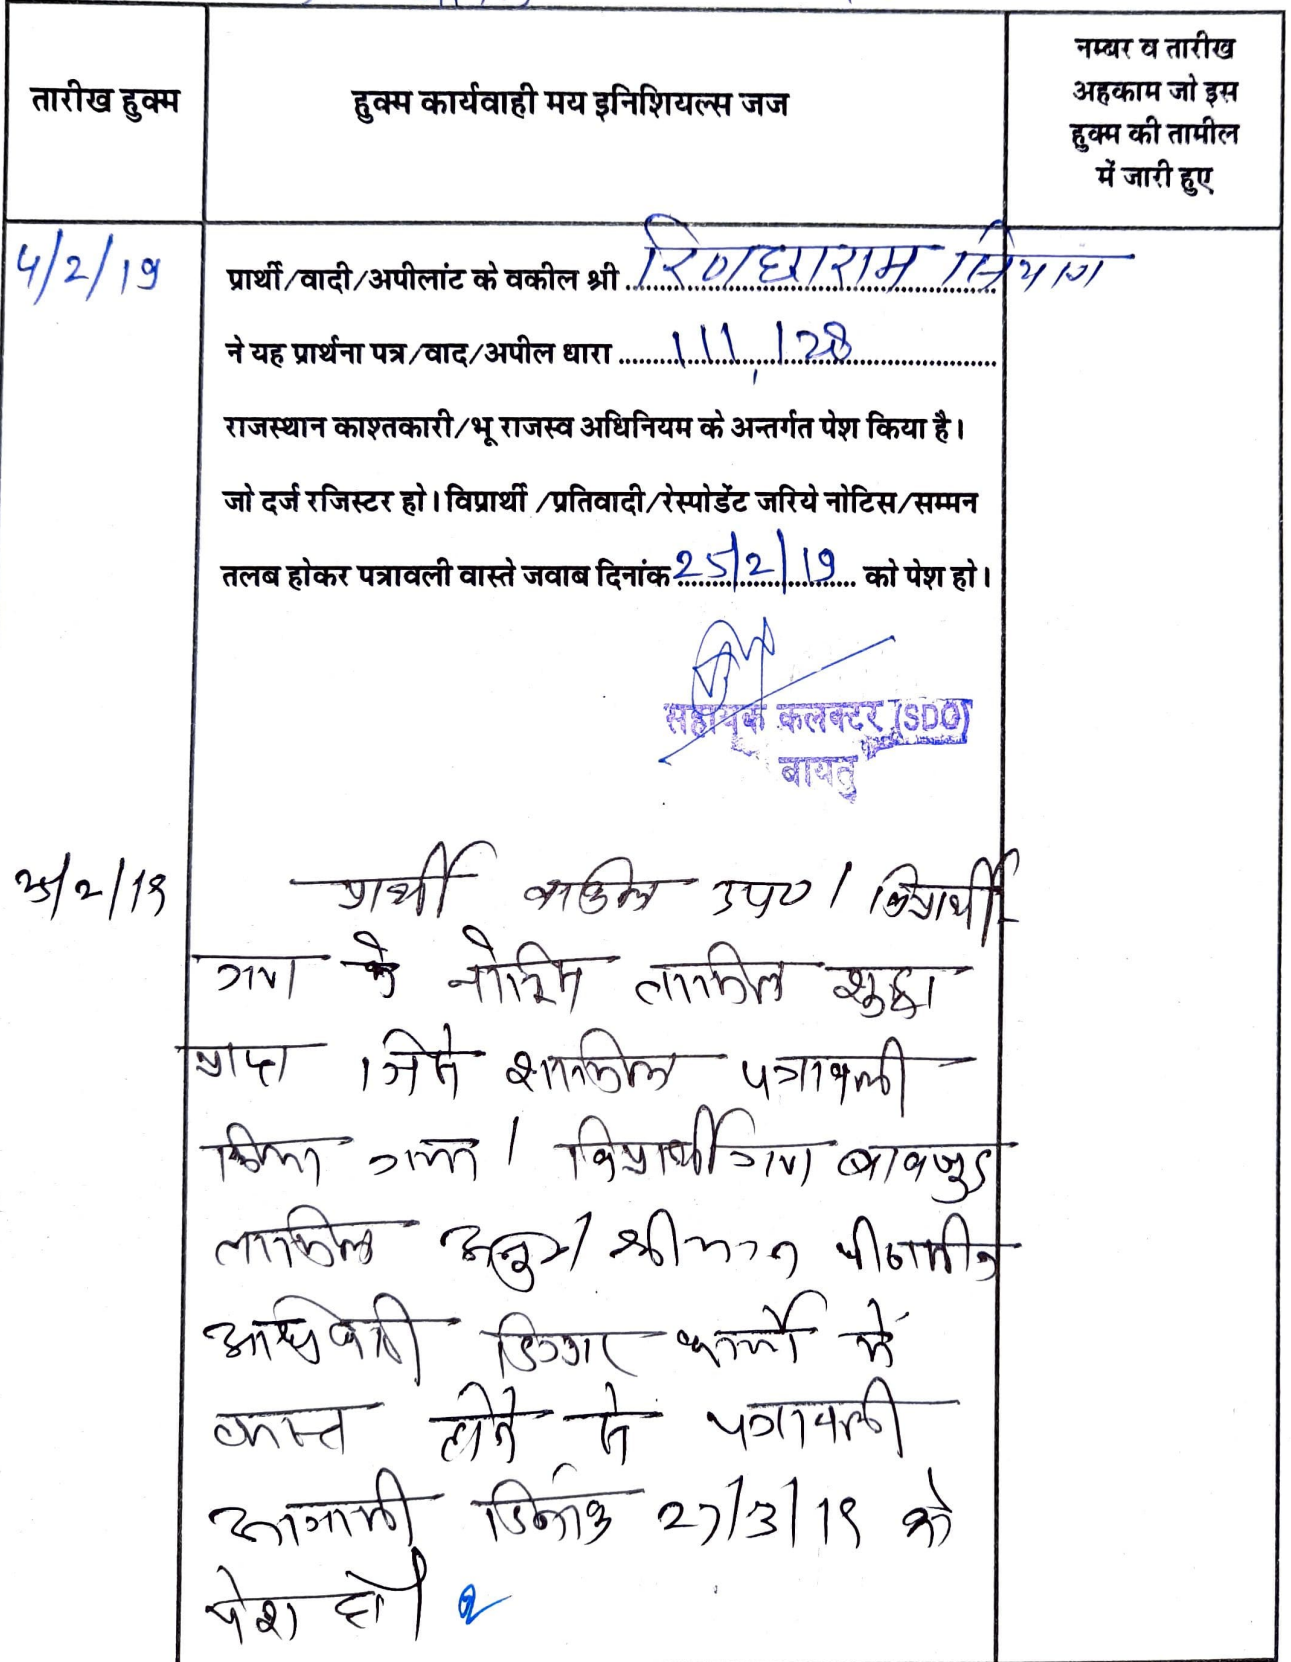 तारीख हुक्म
हुक्म कार्यवाही मय इनिशियल्स जज
नम्बर व तारीख
अहकाम जो इस
हुक्म की तामील
में जारी हुए
4/2/19
प्रार्थी/वादी/अपीलांट के वकील श्री रिणछाराम सियाग
ने यह प्रार्थना पत्र/वाद/अपील धारा 111, 128
राजस्थान काश्तकारी/भू राजस्व अधिनियम के अन्तर्गत पेश किया है।
जो दर्ज रजिस्टर हो। विप्रार्थी /प्रतिवादी/रेस्पोडेंट जरिये नोटिस/सम्मन
तलब होकर पत्रावली वास्ते जवाब दिनांक 25/2/19 को पेश हो।
सहायक कलक्टर (SDO)
बायतु
25/2/19
प्रार्थी वकील उप0। विप्रार्थी
गण के नोटिस तामिल शुदा
प्राप्त जिसे शामिल पत्रावली
किया गया। विप्रार्थीगण बावजुद
तामिल अनु0। श्रीमान पीठासीन
अधिकारी दिगर कार्यो में
व्यस्त होने से पत्रावली
आगामी दिनांक 27/3/19 को
पेश हो।